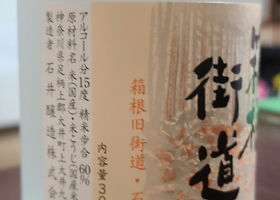 街道
箱根旧街道・石
内容量30
アルコール分15度 精米歩合 60%
原材料名 米(国産)・米こうじ(国産米
神奈川県足柄上郡大井町上大井九
製造者 石井醸造株式会